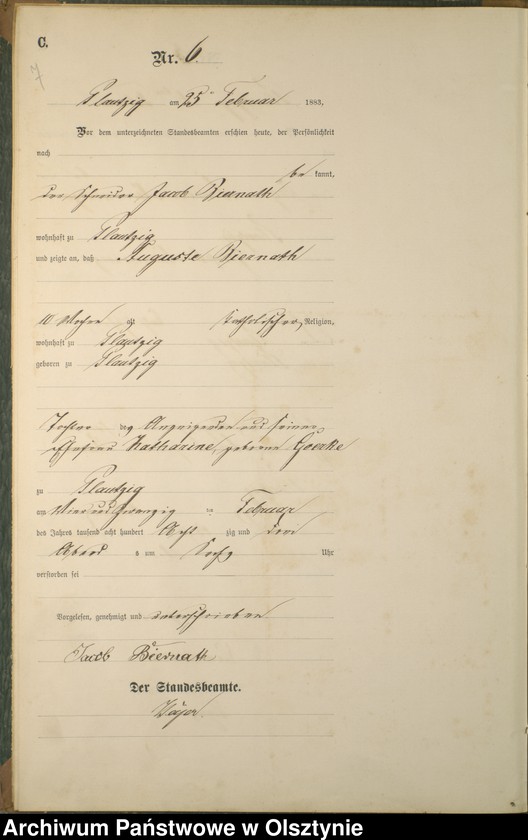 C.
Nr. 6.
7
Plautzig am 25 Februar 1883.
Vor dem unterzeichneten Standesbeamten erschien heute, der Persönlichkeit
nach
be kannt,
der Schneider Jacob Biernath
wohnhaft zu Plautzig
und zeigte an, daß Auguste Biernath
10 Wochen alt katholischer Religion,
wohnhaft zu Plautzig
geboren zu Plautzig
Tochter des Anzeigenden und seiner
Ehefrau Katharine, geborene Goerke
zu Plautzig
am Vierundzwanzig Februar
des Jahres tausend acht hundert Acht zig und drei
Abends um sechs Uhr
verstorben sei
Vorgelesen, genehmigt und unterschrieben
Jacob Biernath
Der Standesbeamte.
Archiwum Państwowe w Olsztynie